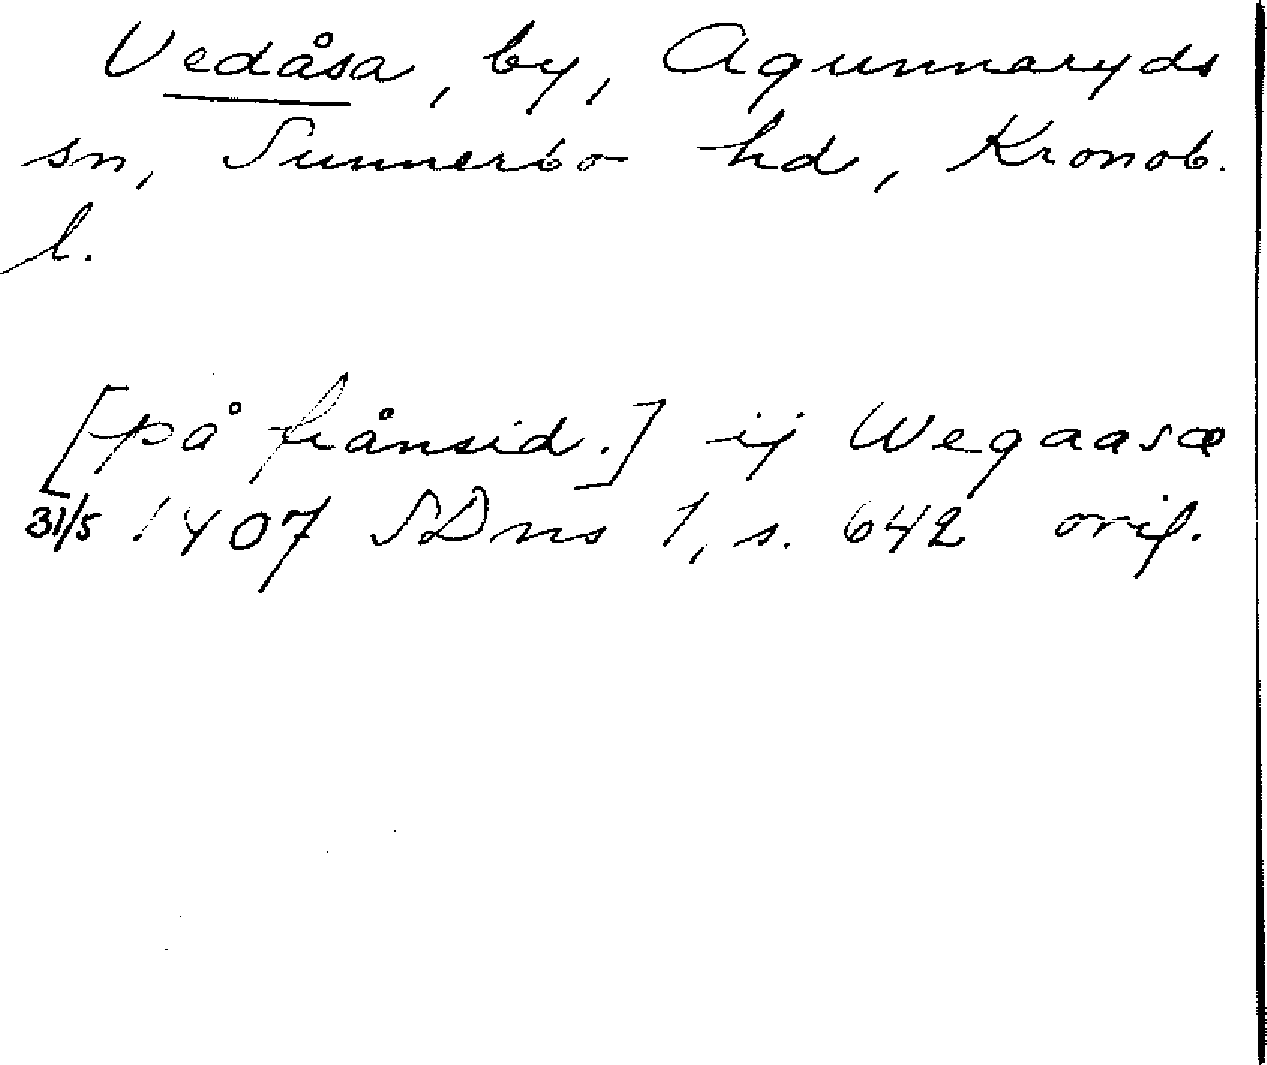 Vedåsa, by, Agunnaryds
sn, Sunnerbo hd, Kronob.
l.
[på frånsid.] ij Wegaasæ
31/5 1407 SDns 1, s. 642 orig.